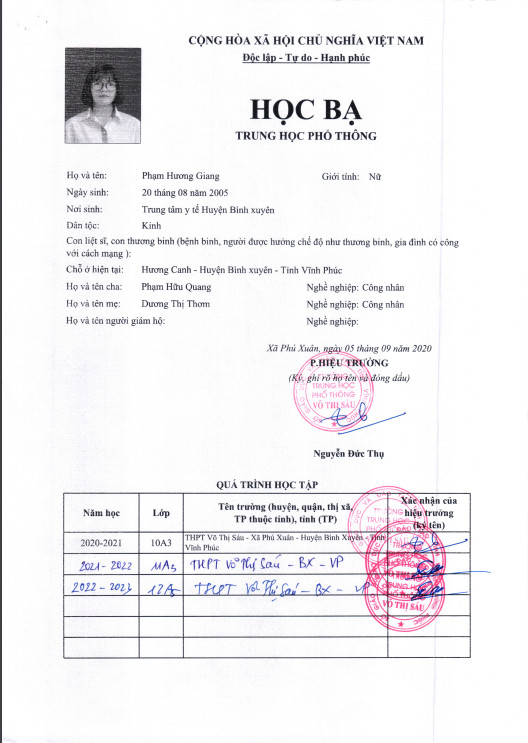 CỘNG HÒA XÃ HỘI CHỦ NGHĨA VIỆT NAM
Độc lập - Tự do - Hạnh phúc
HỌC BẠ
TRUNG HỌC PHỔ THÔNG
Họ và tên: Phạm Hương Giang Giới tính: Nữ
Ngày sinh: 20 tháng 08 năm 2005
Nơi sinh: Trung tâm y tế Huyện Bình xuyên
Dân tộc: Kinh
Con liệt sĩ, con thương binh (bệnh binh, người được hưởng chế độ như thương binh, gia đình có công
với cách mạng ):
Chỗ ở hiện tại: Hương Canh - Huyện Bình xuyên - Tỉnh Vĩnh Phúc
Họ và tên cha: Phạm Hữu Quang Nghề nghiệp: Công nhân
Họ và tên mẹ: Dương Thị Thơm Nghề nghiệp: Công nhân
Họ và tên người giám hộ: Nghề nghiệp:
Xã Phú Xuân, ngày 05 tháng 09 năm 2020
P.HIỆU TRƯỞNG
(Ký, ghi rõ họ tên và đóng dấu)
TRƯỜNG
TRUNG HỌC
PHỔ THÔNG
VÕ THỊ SÁU
Nguyễn Đức Thụ
QUÁ TRÌNH HỌC TẬP
Năm học Lớp Tên trường (huyện, quận, thị xã, TP thuộc tỉnh), tỉnh (TP) Xác nhận của hiệu trưởng (ký tên)
2020-2021 10A3 THPT Võ Thị Sáu - Xã Phú Xuân - Huyện Bình Xuyên - Tỉnh Vĩnh Phúc
2021 - 2022 11A3 THPT Võ Thị Sáu - BX - VP
2022 - 2023 12A3 THPT Võ Thị Sáu - BX - VP
TRƯỜNG
TRUNG HỌC
TRUNG HỌC
PHỔ THÔNG
VÕ THỊ SÁU